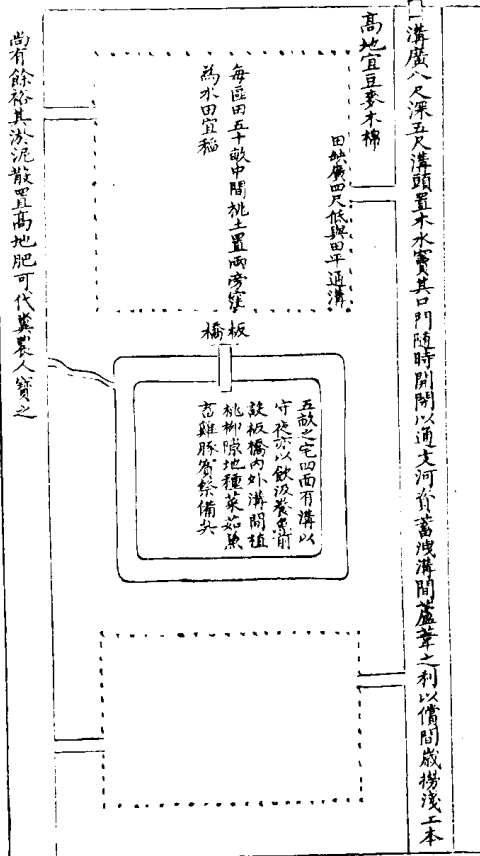 一溝廣八尺深五尺溝頭置木水竇其口門隨時開閉以通支河資蓄洩溝間蘆葦之利以償間歲撈淺工本
高地宜豆麥木棉
田缺廣四尺低與田平通溝
每區田五十畝中間挑土置兩旁窪
為水田宜稻
板橋
五畝之宅四面有溝以
守夜亦以飲汲養魚前
設板橋內外溝間植
桃柳隙地種菜茹魚
畜雞豚賓祭備矣
尚有餘裕其淤泥散置高地肥可代糞農人寶之